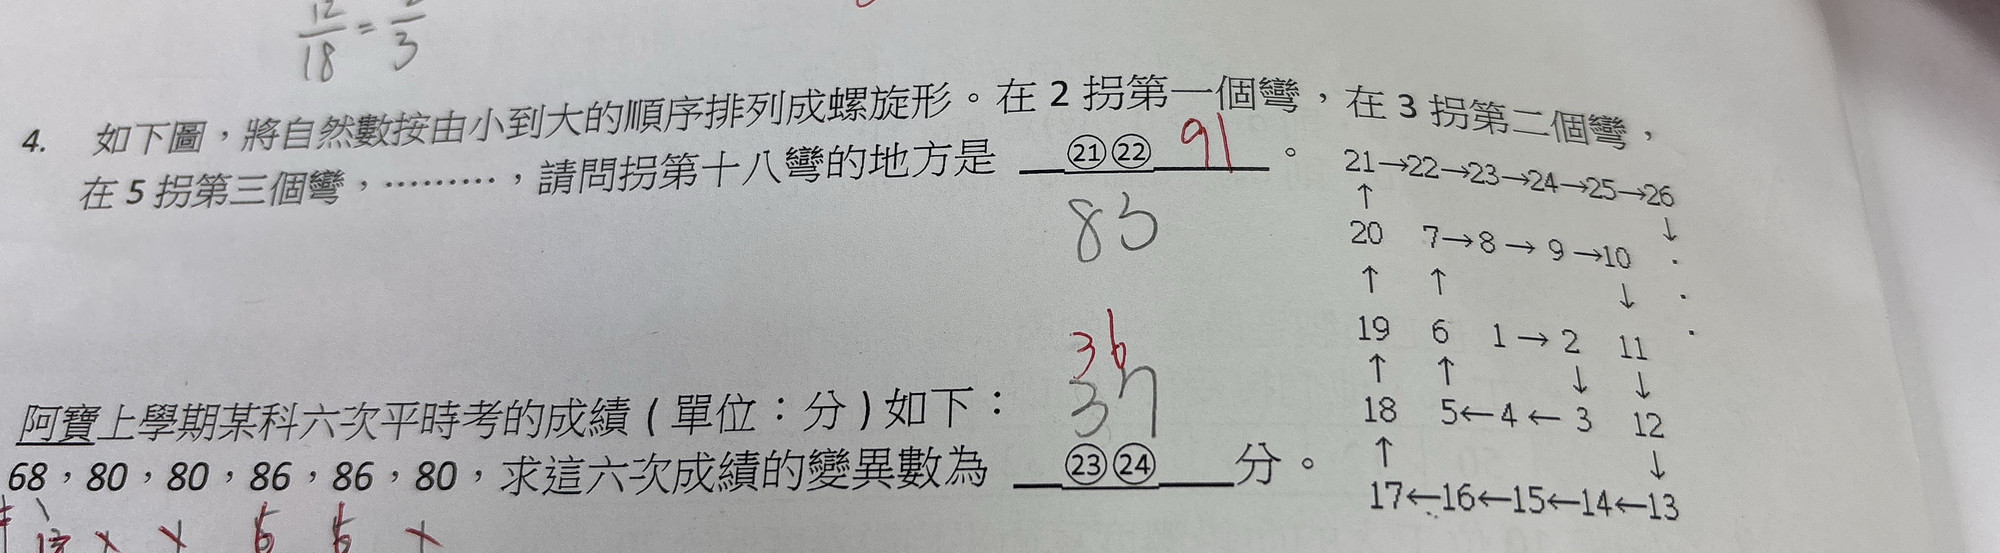 12/18 = 2/3
4. 如下圖，將自然數按由小到大的順序排列成螺旋形。在 2 拐第一個彎，在 3 拐第二個彎，
在 5 拐第三個彎，………，請問拐第十八彎的地方是 ㉑㉒ 91 。
83
21→22→23→24→25→26
↑ ↓
20 7→8→9→10 .
↑ ↑ ↓ .
19 6 1→2 11 .
↑ ↑ ↓ ↓
18 5←4←3 12
↑ ↓
17←16←15←14←13
36
37
阿寶上學期某科六次平時考的成績（單位：分）如下：
68，80，80，86，86，80，求這六次成績的變異數為 ㉓㉔ 分。
12 x x 6 6 x